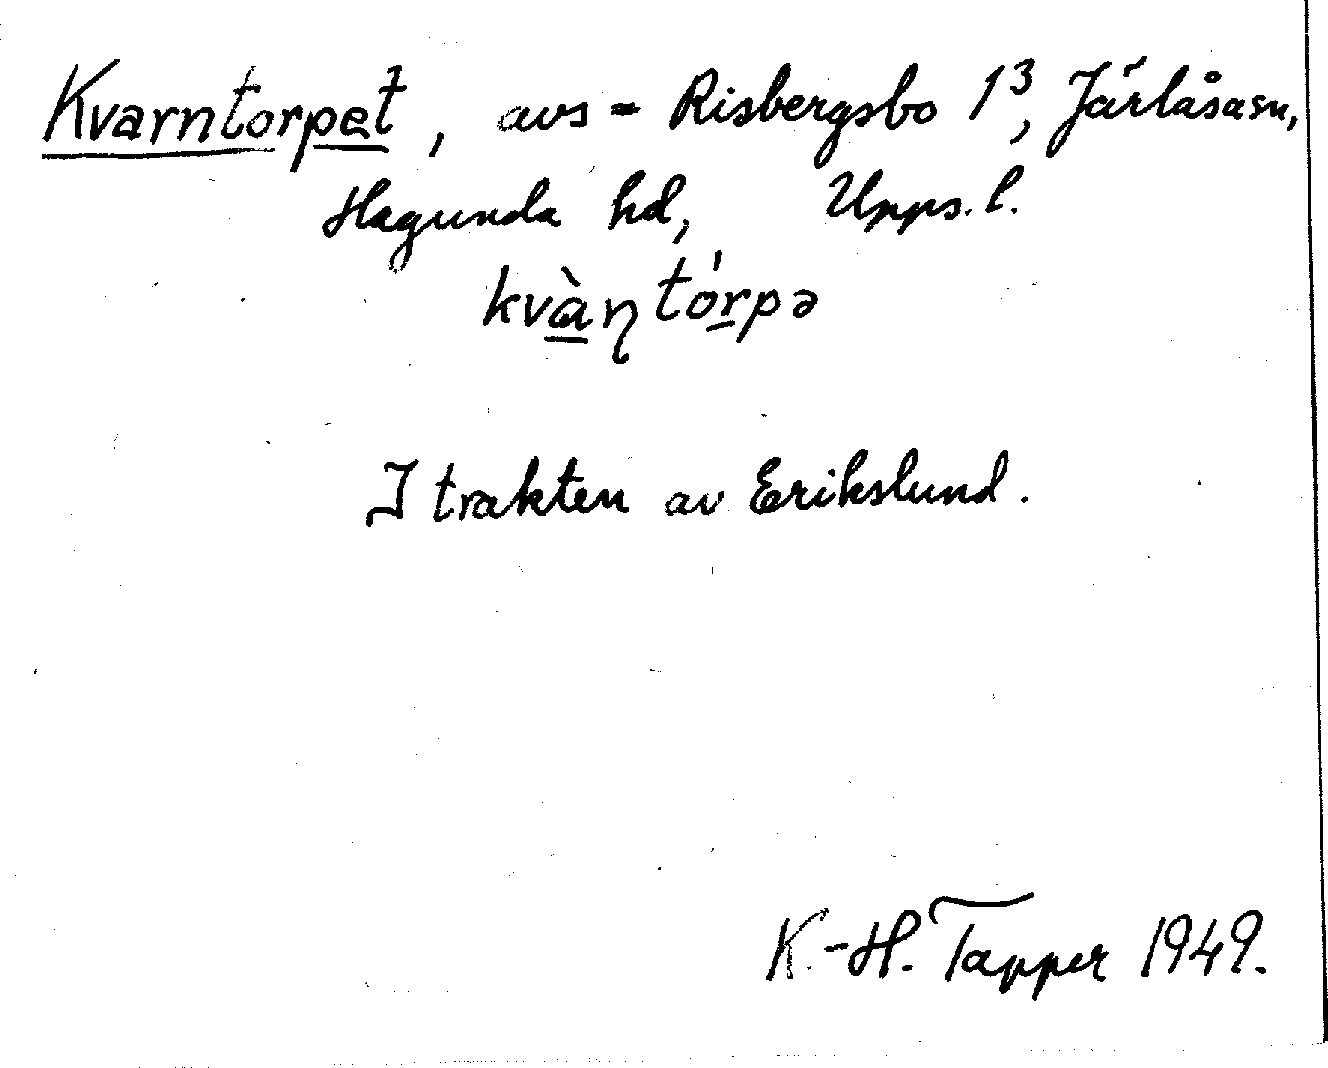 Kvarntorpet, avs = Risbergsbo 1³, Järlåsa sn,
Hagunda hd, Upps. l.
kvàɳtórpə
I trakten av Erikslund.
K.-H. Tapper 1949.